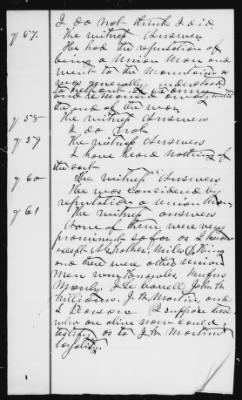 I do not think I did
y 57. The witness Answers
He had the reputation of
being a Union Man and
went to the Mountains as
was generally understood
to keep out of the army
and remained
the end of the war
y 58 The witness Answers
I do not
y 59 The witness Answers
I have heard nothing of
the sort
y 60 The witness Answers
He was considered by
reputation a Union Man
y 61 The witness answers
None of them were very
prominent so far as I know
except A. G. Baker, Miles
and there were other Union
Men
John H.
Williams, J. A. Martin, and
I suppose those
who are alive now could
testify as to J. A. Martin's
loyalty